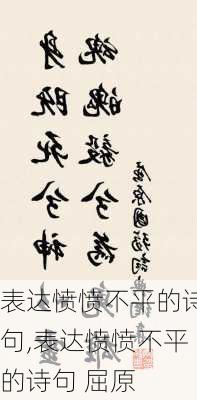 身既死兮神
魂魄毅兮為
屈原國殤詞
表达愤愤不平的诗
句,表达愤愤不平
的诗句 屈原